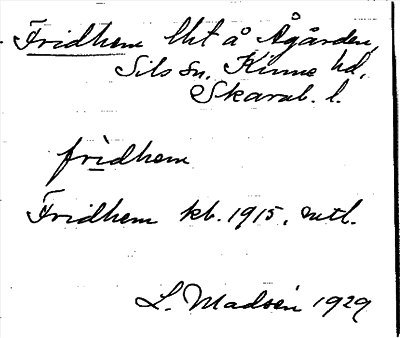 Fridhem lht å Ågården,
Sils sn. Kinne hd,
Skarab. l.
fri̱dhem
Fridhem kb. 1915, mtl.
L. Madsén 1929